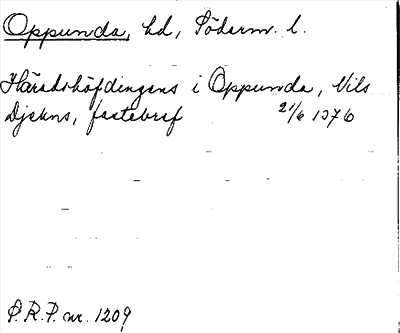 Oppunda, hd, Söderm. l.
Häradshöfdingens i Oppunda, Nils
Djekns, fastebref 21/6 1376
P.R.P. nr. 1209